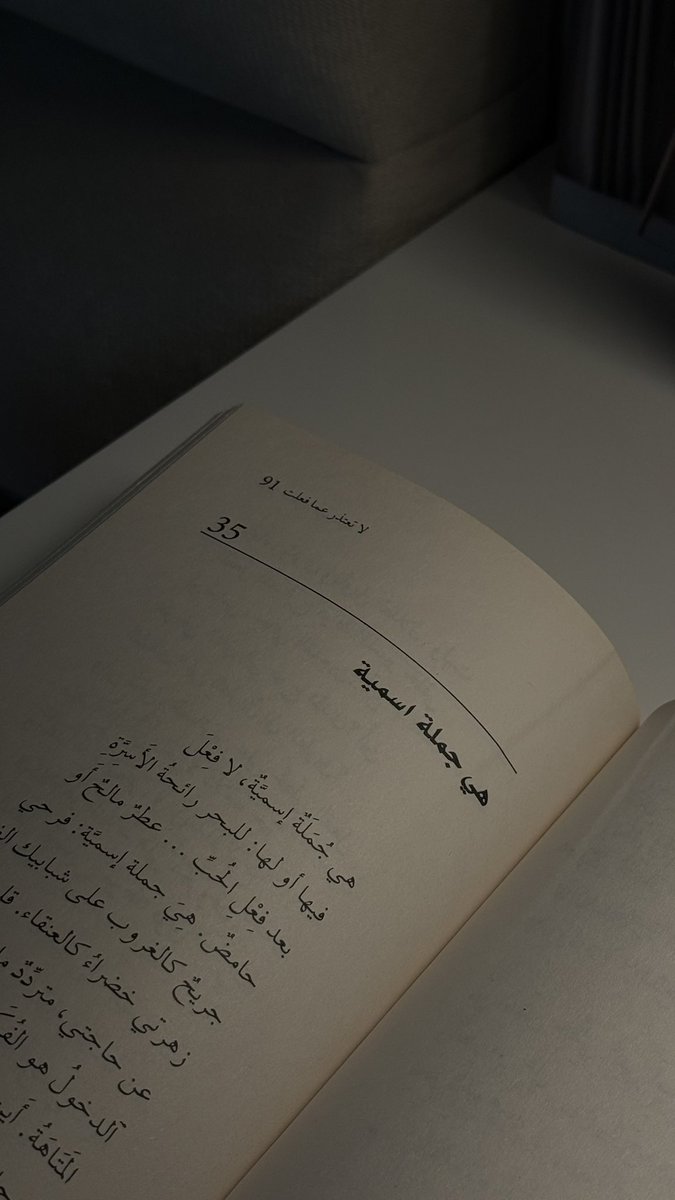 لا تعتذر عما فعلت 91
35
هي جملة اسمية
هي جُمْلَةٌ إسميَّةٌ، لا فِعْلَ
فيها أو لها: للبحر رائحةُ الأَسِرَّةِ
بعد فِعْلِ الحُبِّ ... عطرٌ مالحٌ أَو
حامضٌ. هِيَ جملة إسميَّة: فرحي
جريحٌ كالغروب على شبابيك
زهرتي خضراءُ كالعنقاء.
عن حاجتي، متردِّدٌ
الدخولُ هو
المَتَاهَةُ.